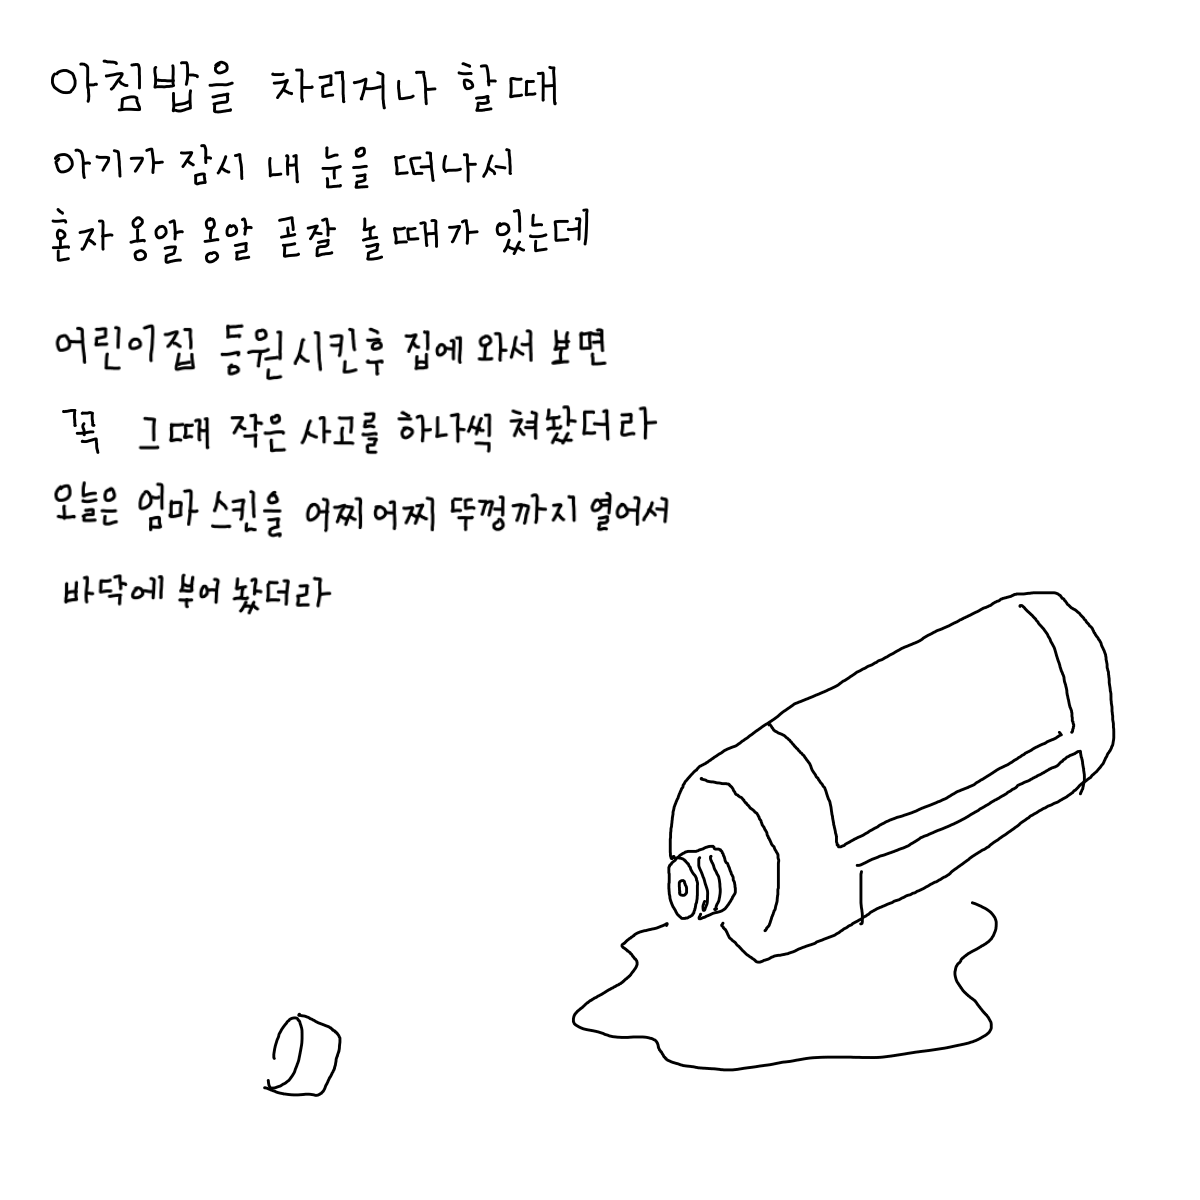 아침밥을 차리거나 할때
아기가 잠시 내 눈을 떠나서
혼자 옹알 옹알 곧잘 놀때가 있는데
어린이집 등원시킨후 집에 와서 보면
꼭 그때 작은 사고를 하나씩 쳐놨더라
오늘은 엄마 스킨을 어찌어찌 뚜껑까지 열어서
바닥에 부어 놨더라